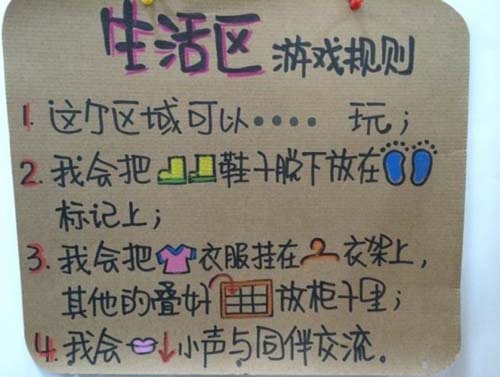 生活区 游戏规则
1. 这个区域可以•••• 玩;
2. 我会把鞋子脱下放在
标记上;
3. 我会把衣服挂在衣架上,
其他的叠好放柜子里;
4. 我会小声与同伴交流。